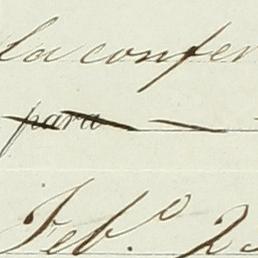 la confer
para
Feb.º 23